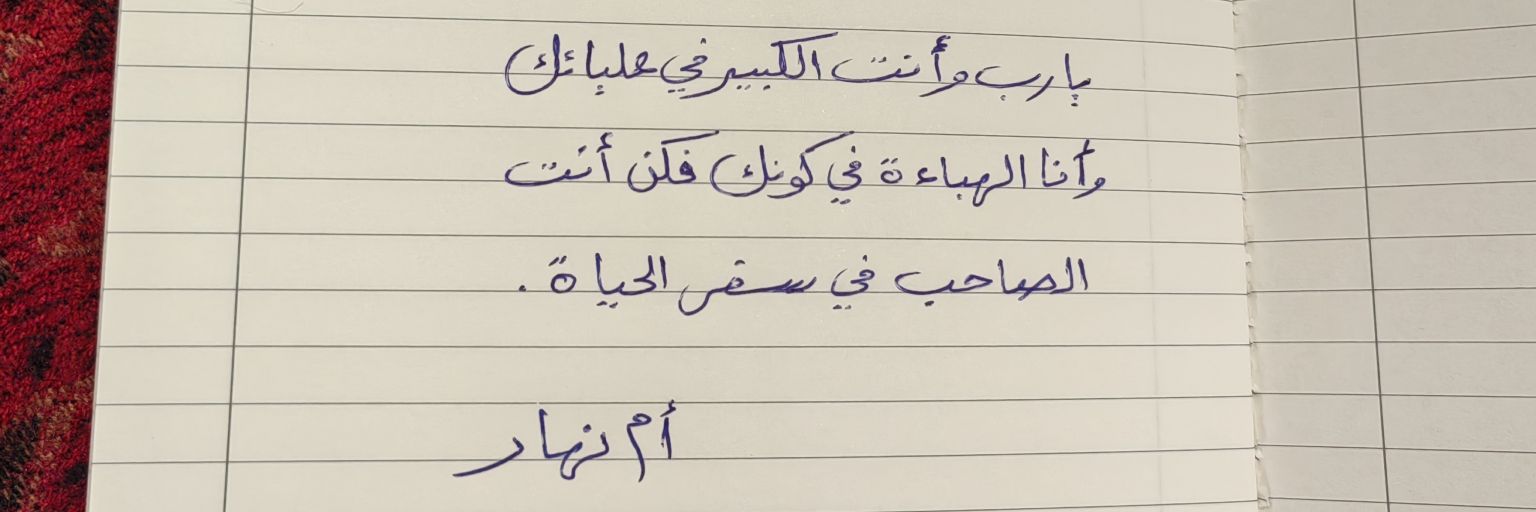 يارب وأنت الكبير في عليائك
وأنا الهباءة في كونك فكن أنت
الصاحب في سفر الحياة .
أم نهار